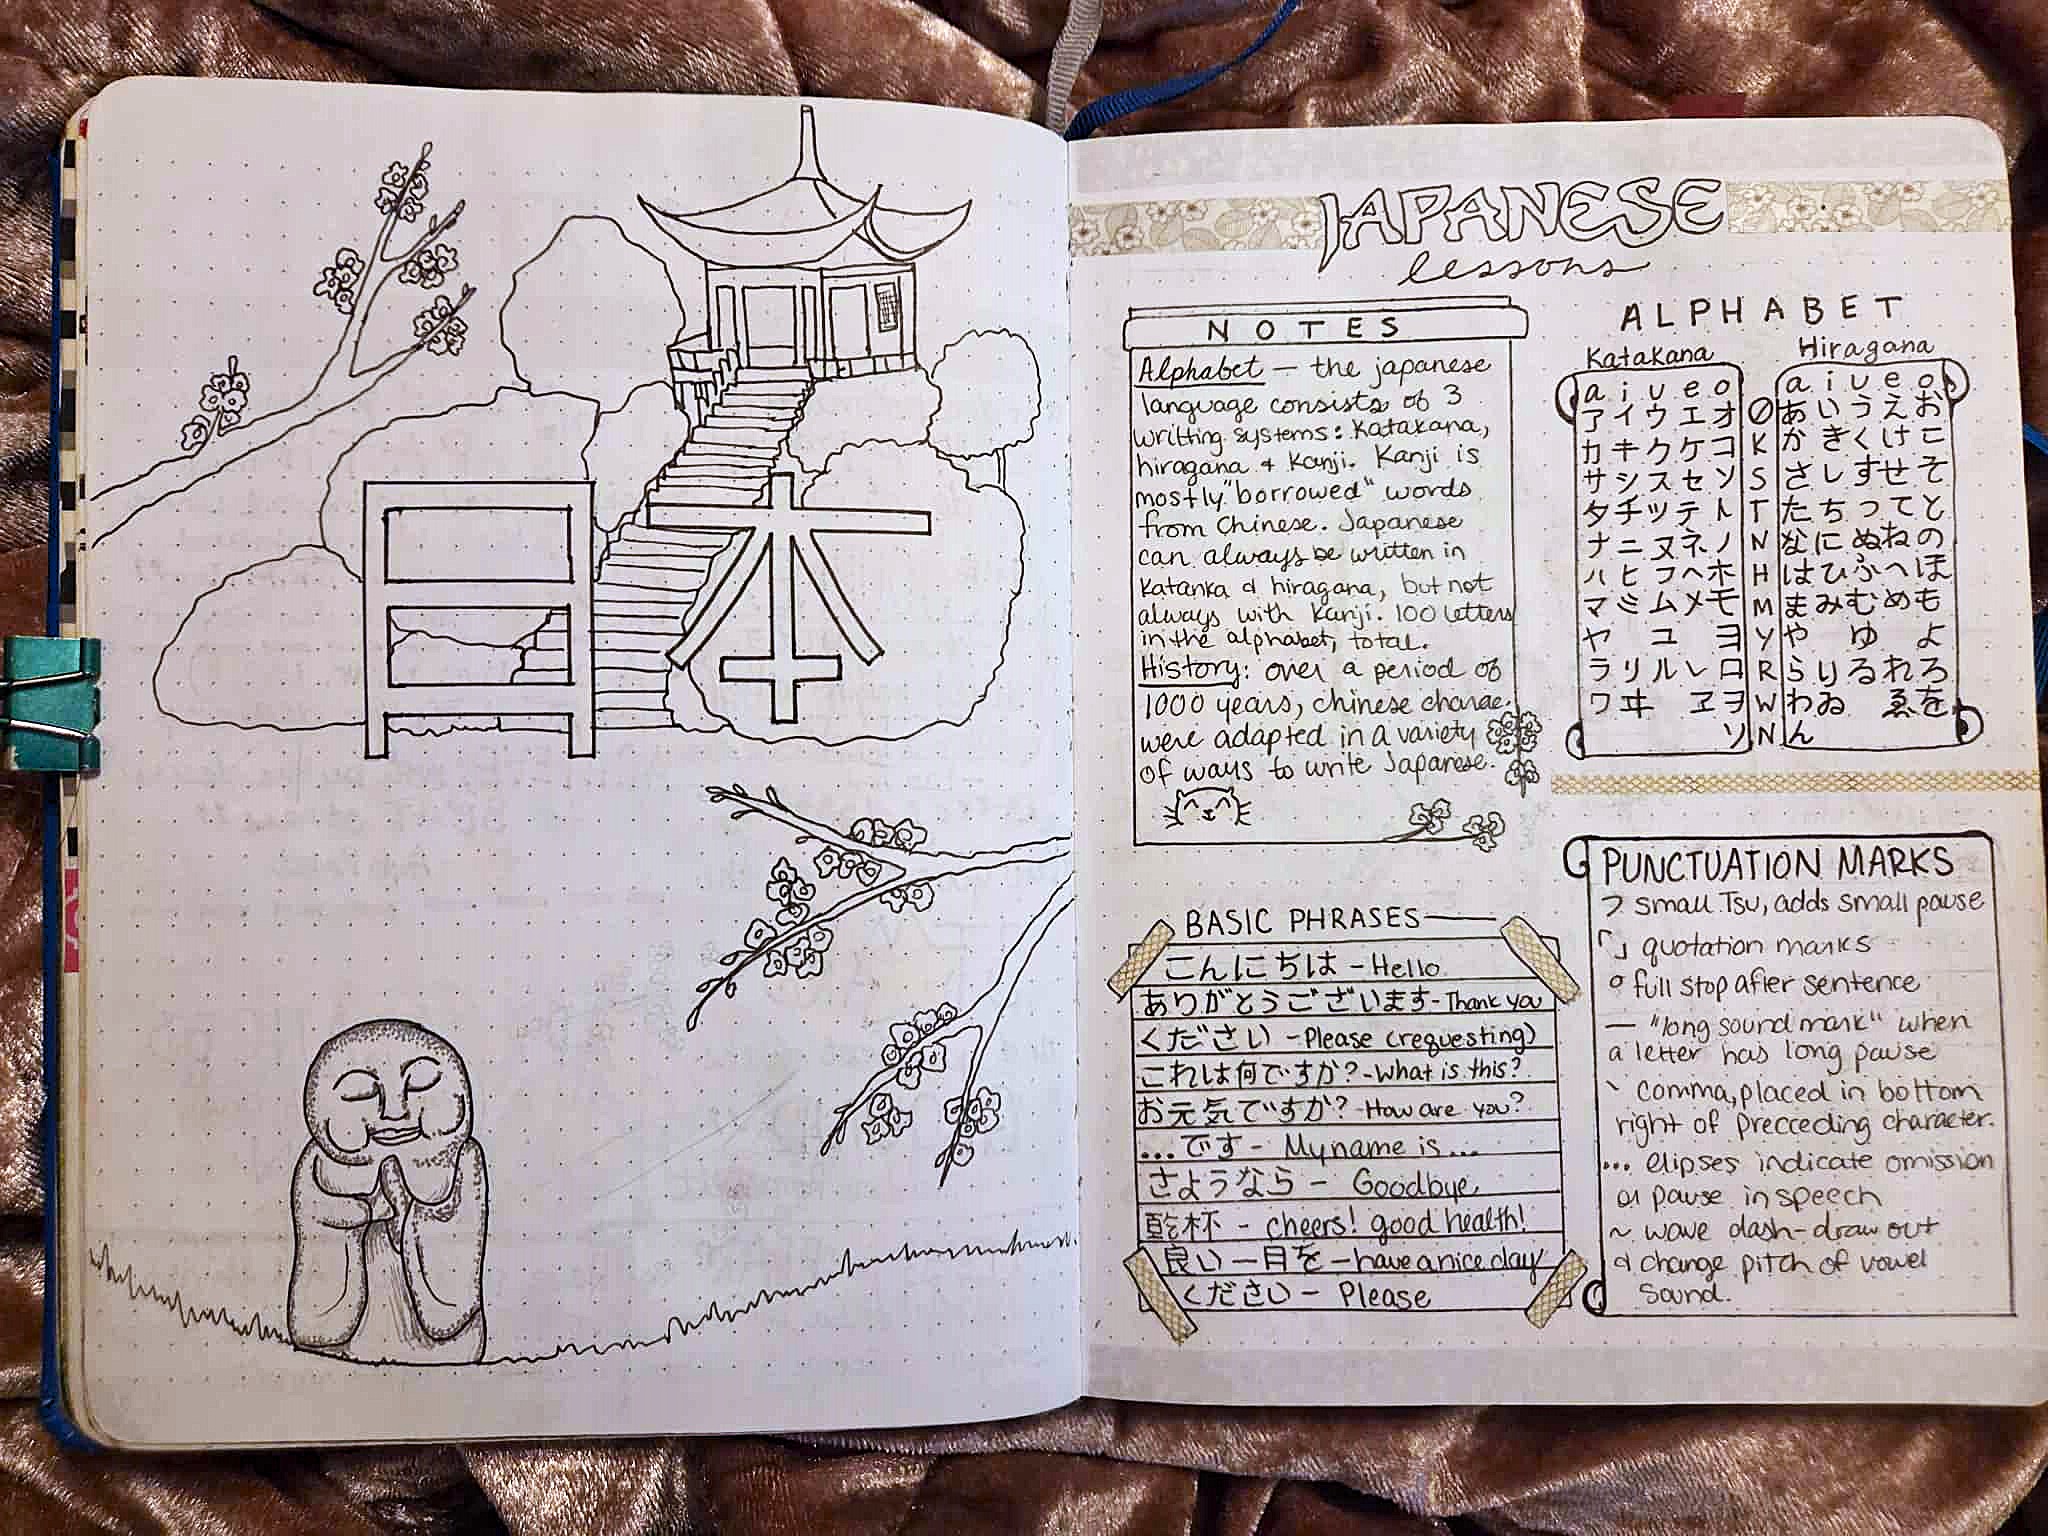 日本
JAPANESE
lessons
NOTES
Alphabet — the japanese
language consists of 3
writting systems: Katakana,
hiragana & Kanji. Kanji is
mostly "borrowed" words
from Chinese. Japanese
can always be written in
Katanka & hiragana, but not
always with Kanji. 100 letters
in the alphabet, total.
History: over a period of
1000 years, chinese charac.
were adapted in a variety
of ways to write Japanese.
ALPHABET
Katakana Hiragana
a i u e o a i u e o
アイウエオ Ø あいうえお
カキクケコ K かきくけこ
サシスセソ S さしすせそ
タチツテト T たちつてと
ナニヌネノ N なにぬねの
ハヒフヘホ H はひふへほ
マミムメモ M まみむめも
ヤ ユ ヨ Y や ゆ よ
ラリルレロ R らりるれろ
ワヰ ヱヲ W わゐ ゑを
ソ N ん
BASIC PHRASES
こんにちは - Hello
ありがとうございます - Thank you
ください - Please (requesting)
これは何ですか? - What is this?
お元気ですか? - How are you?
...です - My name is...
さようなら - Goodbye
乾杯 - cheers! good health!
良い一日を - have a nice day
ください - Please
PUNCTUATION MARKS
っ small Tsu, adds small pause
「」 quotation marks
。 full stop after sentence
ー "long sound mark" when
a letter has long pause
、 comma, placed in bottom
right of precceding character.
... elipses indicate omission
or pause in speech
~ wave dash - draw out
& change pitch of vowel
sound.